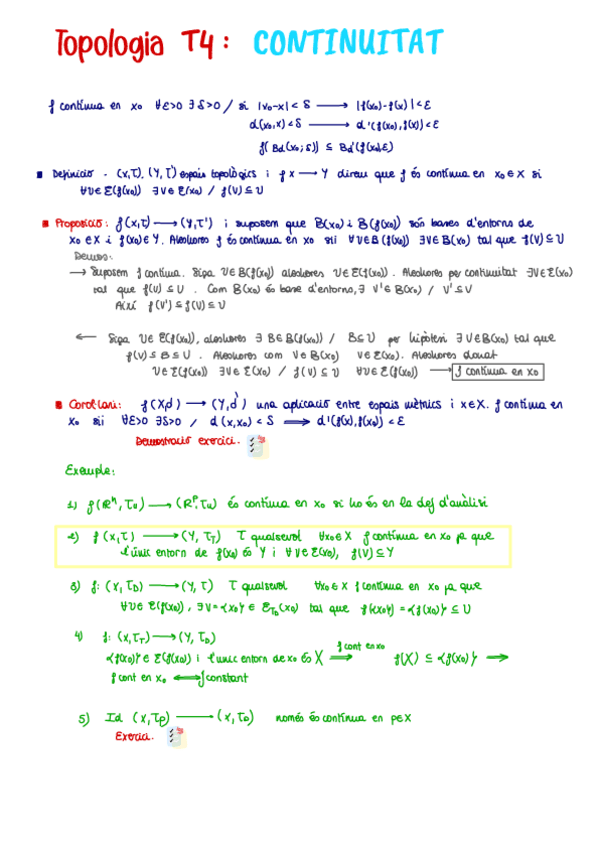 Topologia T4: CONTINUITAT
f contínua en x₀ ∀ε>0 ∃δ>0 / si |x₀-x|<δ ⟶ |f(x₀)-f(x)|<ε
d(x₀,x)<δ ⟶ d'(f(x₀),f(x))<ε
f(Bd(x₀;δ)) ⊆ Bd'(f(x₀),ε)
Definició - (X,τ), (Y,τ') espais topològics i f X ⟶ Y direu que f és contínua en x₀∈X si
∀U∈Ɛ(f(x₀)) ∃V∈Ɛ(x₀) / f(V)⊆U
Proposició: f(X,τ) ⟶ (Y,τ') i suposem que B(x₀) i B(f(x₀)) són bases d'entorns de
x₀∈X i f(x₀)∈Y. Aleshores f és contínua en x₀ sii ∀U∈B(f(x₀)) ∃V∈B(x₀) tal que f(V)⊆U
Demos:
⟶ Suposem f contínua. Sigui U∈B(f(x₀)) aleshores U∈Ɛ(f(x₀)). Aleshores per continuitat ∃V∈Ɛ(x₀)
tal que f(V)⊆U. Com B(x₀) és base d'entorns, ∃ V'∈B(x₀) / V'⊆V
Així f(V')⊆f(V)⊆U
⟵ Sigui U∈Ɛ(f(x₀)), aleshores ∃ B∈B(f(x₀)) / B⊆U per hipòtesi ∃V∈B(x₀) tal que
f(V)⊆B⊆U. Aleshores com V∈B(x₀) V∈Ɛ(x₀). Aleshores donat
U∈Ɛ(f(x₀)) ∃V∈Ɛ(x₀) / f(V)⊆U ∀U∈Ɛ(f(x₀)) ⟶ f contínua en x₀
Corol·lari: f(X,d) ⟶ (Y,d') una aplicació entre espais mètrics i x∈X. f contínua en
x₀ sii ∀ε>0 ∃δ>0 / d(x,x₀)<δ ⟹ d'(f(x),f(x₀))<ε
Demostració exercici.
Exemple:
1) f(ℝⁿ,τᵤ) ⟶ (ℝᵖ,τᵤ) és contínua en x₀ si ho és en la def d'anàlisi
2) f(X,τ) ⟶ (Y,τ_T) τ qualsevol ∀x₀∈X f contínua en x₀ ja que
l'únic entorn de f(x₀) és Y i ∀V∈Ɛ(x₀), f(V)⊆Y
3) f: (X,τ_D) ⟶ (Y,τ) τ qualsevol ∀x₀∈X f contínua en x₀ ja que
∀U∈Ɛ(f(x₀)), ∃V={x₀}∈Ɛ_τD(x₀) tal que f({x₀})={f(x₀)}⊆U
4) f: (X,τ_T) ⟶ (Y,τ_D)
{f(x₀)}∈Ɛ(f(x₀)) i l'únic entorn de x₀ és X ⟹ f cont en x₀ f(X)⊆{f(x₀)} ⟹
f cont en x₀ ⟺ f constant
5) Id (X,τp) ⟶ (X,τ_D) només és contínua en p∈X
Exercici.